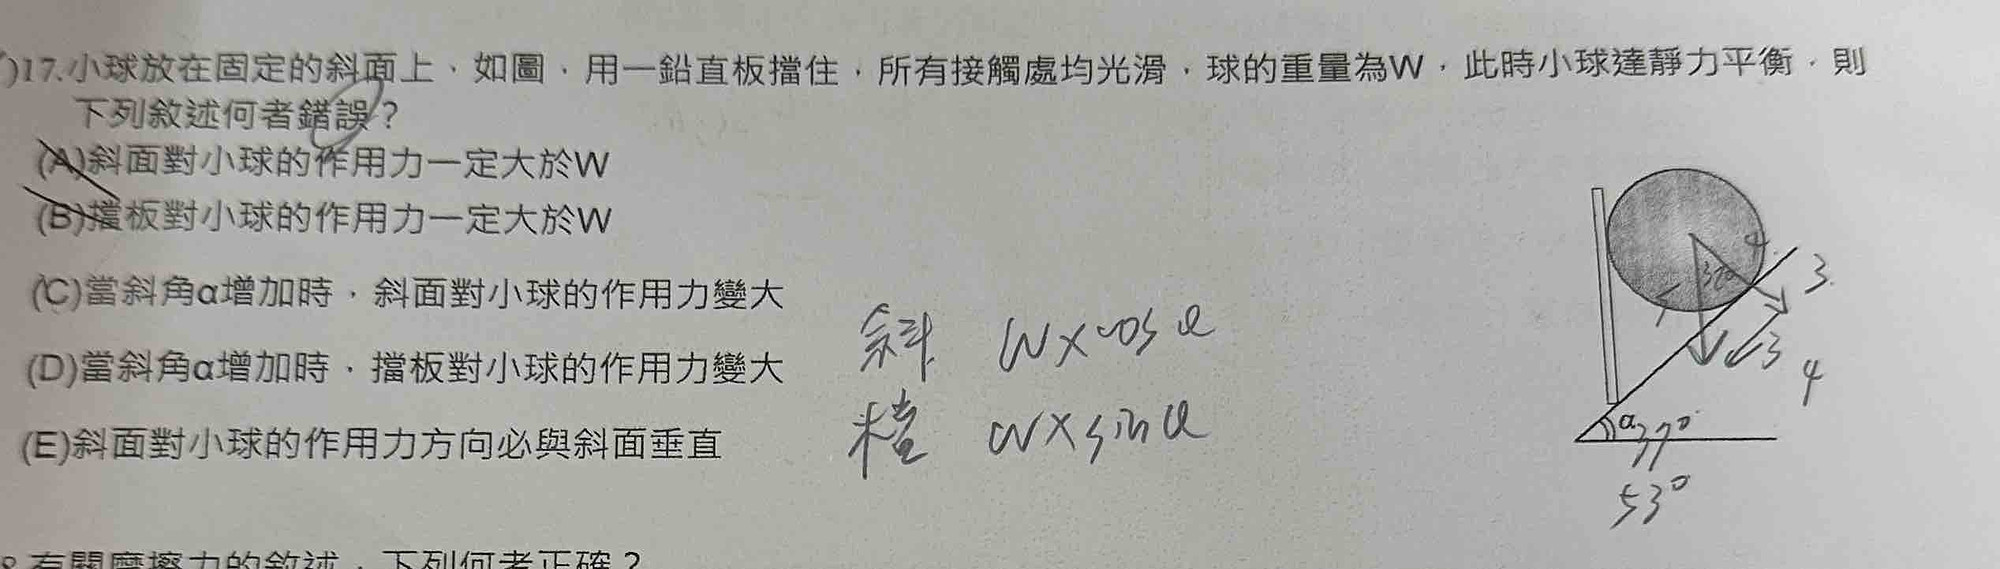 )17.小球放在固定的斜面上，如圖，用一鉛直板擋住，所有接觸處均光滑，球的重量為W，此時小球達靜力平衡，則
下列敘述何者錯誤？
(A)斜面對小球的作用力一定大於W
(B)擋板對小球的作用力一定大於W
(C)當斜角α增加時，斜面對小球的作用力變大
(D)當斜角α增加時，擋板對小球的作用力變大
(E)斜面對小球的作用力方向必與斜面垂直
斜 W×cosα
檔 W×sinα
4
3
37°
5
3
4
α 37°
53°
8.有關摩擦力的敘述，下列何者正確？